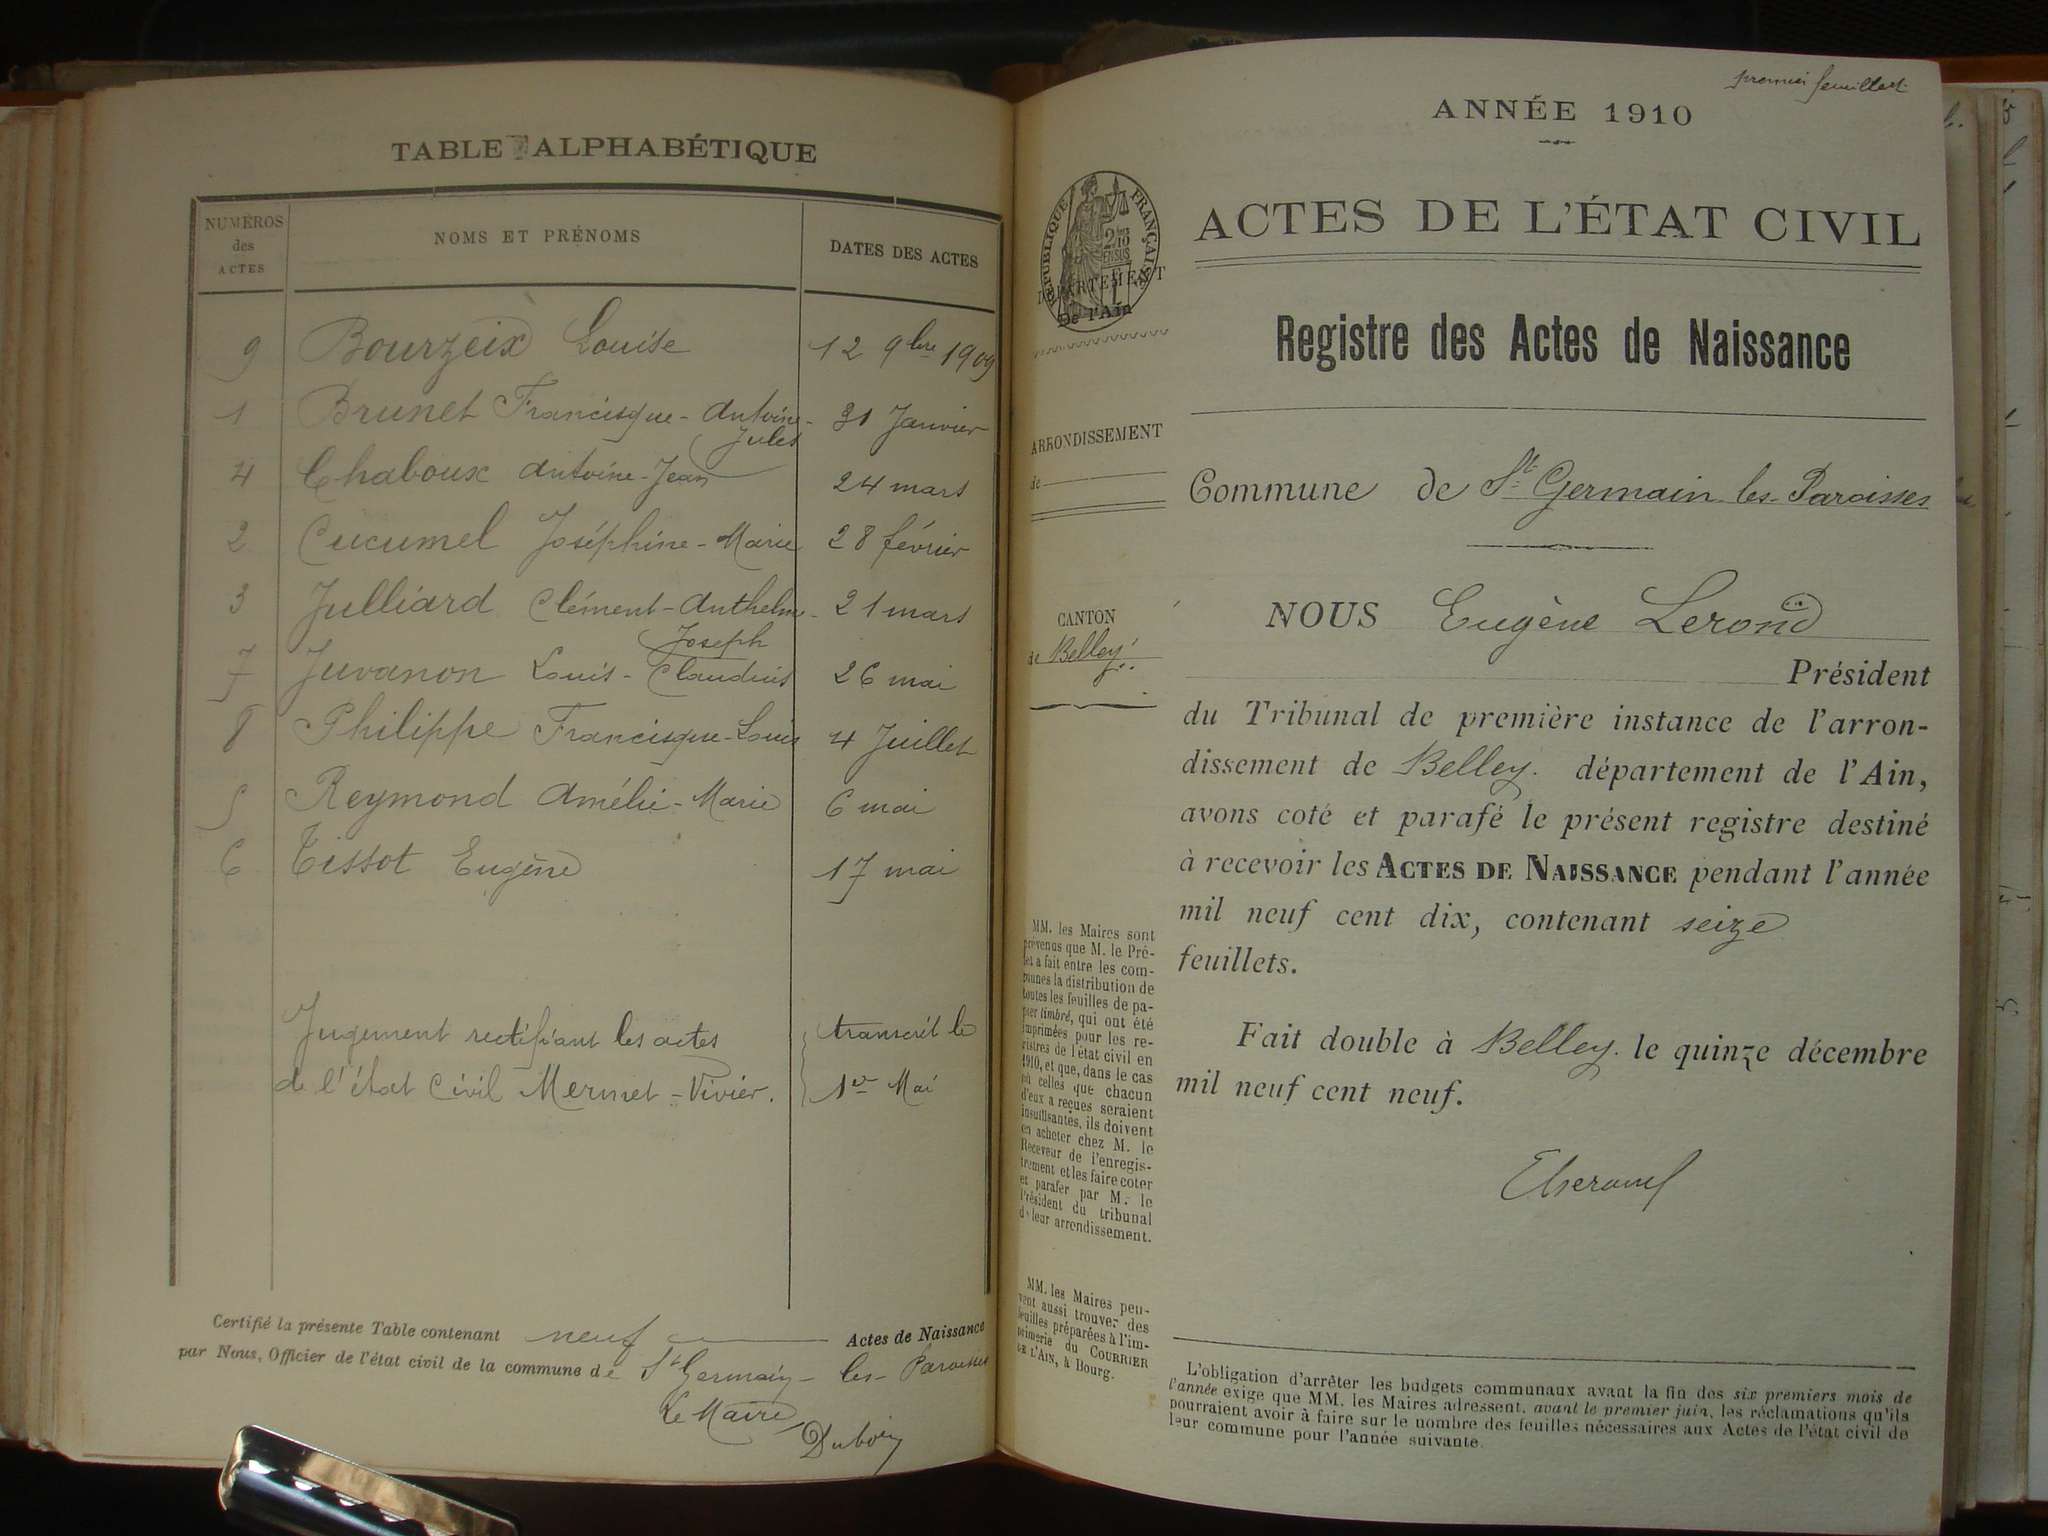 TABLE ALPHABÉTIQUE
NUMÉROS des ACTES
NOMS ET PRÉNOMS
DATES DES ACTES
9 Bourzeix Louise 12 9bre 1909
1 Brunet Francisque-Antoine-Jules 31 Janvier
4 Chaboux Antoine-Jean 24 mars
2 Cucumel Joséphine-Marie 28 février
3 Julliard Clément-Anthelme-Joseph 21 mars
7 Juvanon Louis-Claudius 26 mai
8 Philippe Francisque-Louis 4 Juillet
5 Reymond Amélie-Marie 6 mai
6 Tissot Eugène 17 mai
Jugement rectifiant les actes transcrit le
de l'état civil Mermet-Vivier. 1er Mai
Certifié la présente Table contenant neuf Actes de Naissance
par Nous, Officier de l'état civil de la commune de St Germain-les-Paroisses
Le Maire,
Duboin
premier feuillet.
ANNÉE 1910
RÉPUBLIQUE FRANÇAISE
DÉPARTEMENT
De l'Ain
ACTES DE L'ÉTAT CIVIL
Registre des Actes de Naissance
ARRONDISSEMENT
de
Commune de St Germain-les-Paroisses
CANTON
de Belley.
NOUS Eugène Lerond
Président
du Tribunal de première instance de l'arron-
dissement de Belley. département de l'Ain,
avons coté et parafé le présent registre destiné
à recevoir les ACTES DE NAISSANCE pendant l'année
mil neuf cent dix, contenant seize
feuillets.
Fait double à Belley. le quinze décembre
mil neuf cent neuf.
MM. les Maires sont
prévenus que M. le Pré-
fet a fait entre les com-
munes la distribution de
toutes les feuilles de pa-
pier timbré, qui ont été
imprimées pour les re-
gistres de l'état civil en
1910, et que, dans le cas
où celles que chacun
d'eux a reçues seraient
insuffisantes, ils doivent
en acheter chez M. le
Receveur de l'enregis-
trement et les faire coter
et parafer par M. le
Président du tribunal
de leur arrondissement.
MM. les Maires peu-
vent aussi trouver des
feuilles préparées à l'im-
primerie du COURRIER
DE L'AIN, à Bourg.
L'obligation d'arrêter les budgets communaux avant la fin des six premiers mois de
l'année exige que MM. les Maires adressent, avant le premier juin, les réclamations qu'ils
pourraient avoir à faire sur le nombre des feuilles nécessaires aux Actes de l'état civil de
leur commune pour l'année suivante.